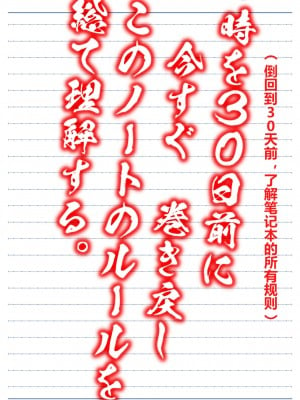 時を30日前に
今すぐ 巻き戻し
このノートのルールを
総て理解する。
（倒回到30天前，了解笔记本的所有规则）